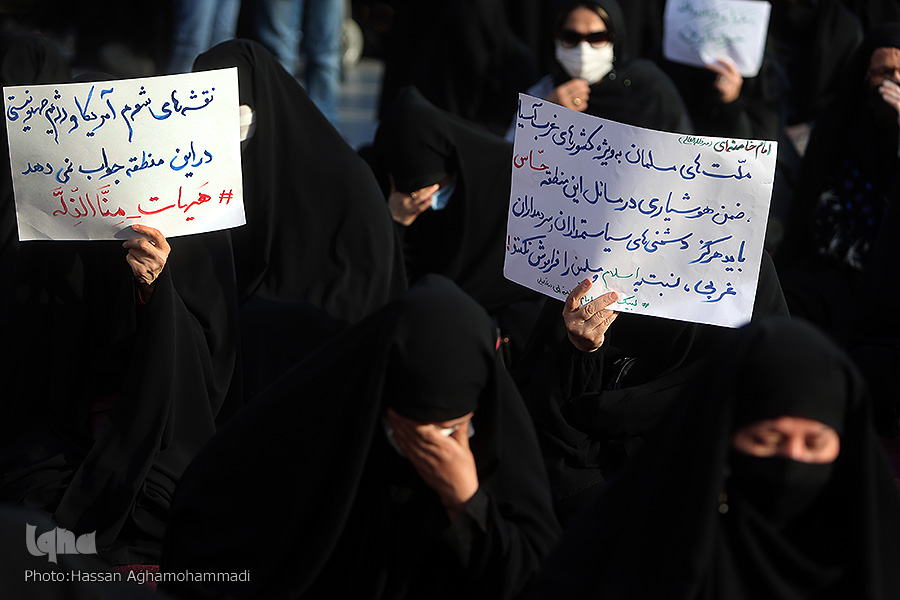 نقشه‌های شوم آمریکا و رژیم صهیونیستی
در این منطقه جواب نمی دهد
# هَیهات_مِنَّاالذِّلَّه
امام خامنه‌ای (مدظله العالی)
ملّت های مسلمان به ویژه کشورهای غرب آسیا
ضمن هوشیاری در مسائل این منطقه حسّاس
باید هرگز دشمنی های سیاستمداران و سردمداران
غربی، نسبت به اسلام و مسلمین را فراموش نکنند!
# لبیک
iqna
Photo:Hassan Aghamohammadi